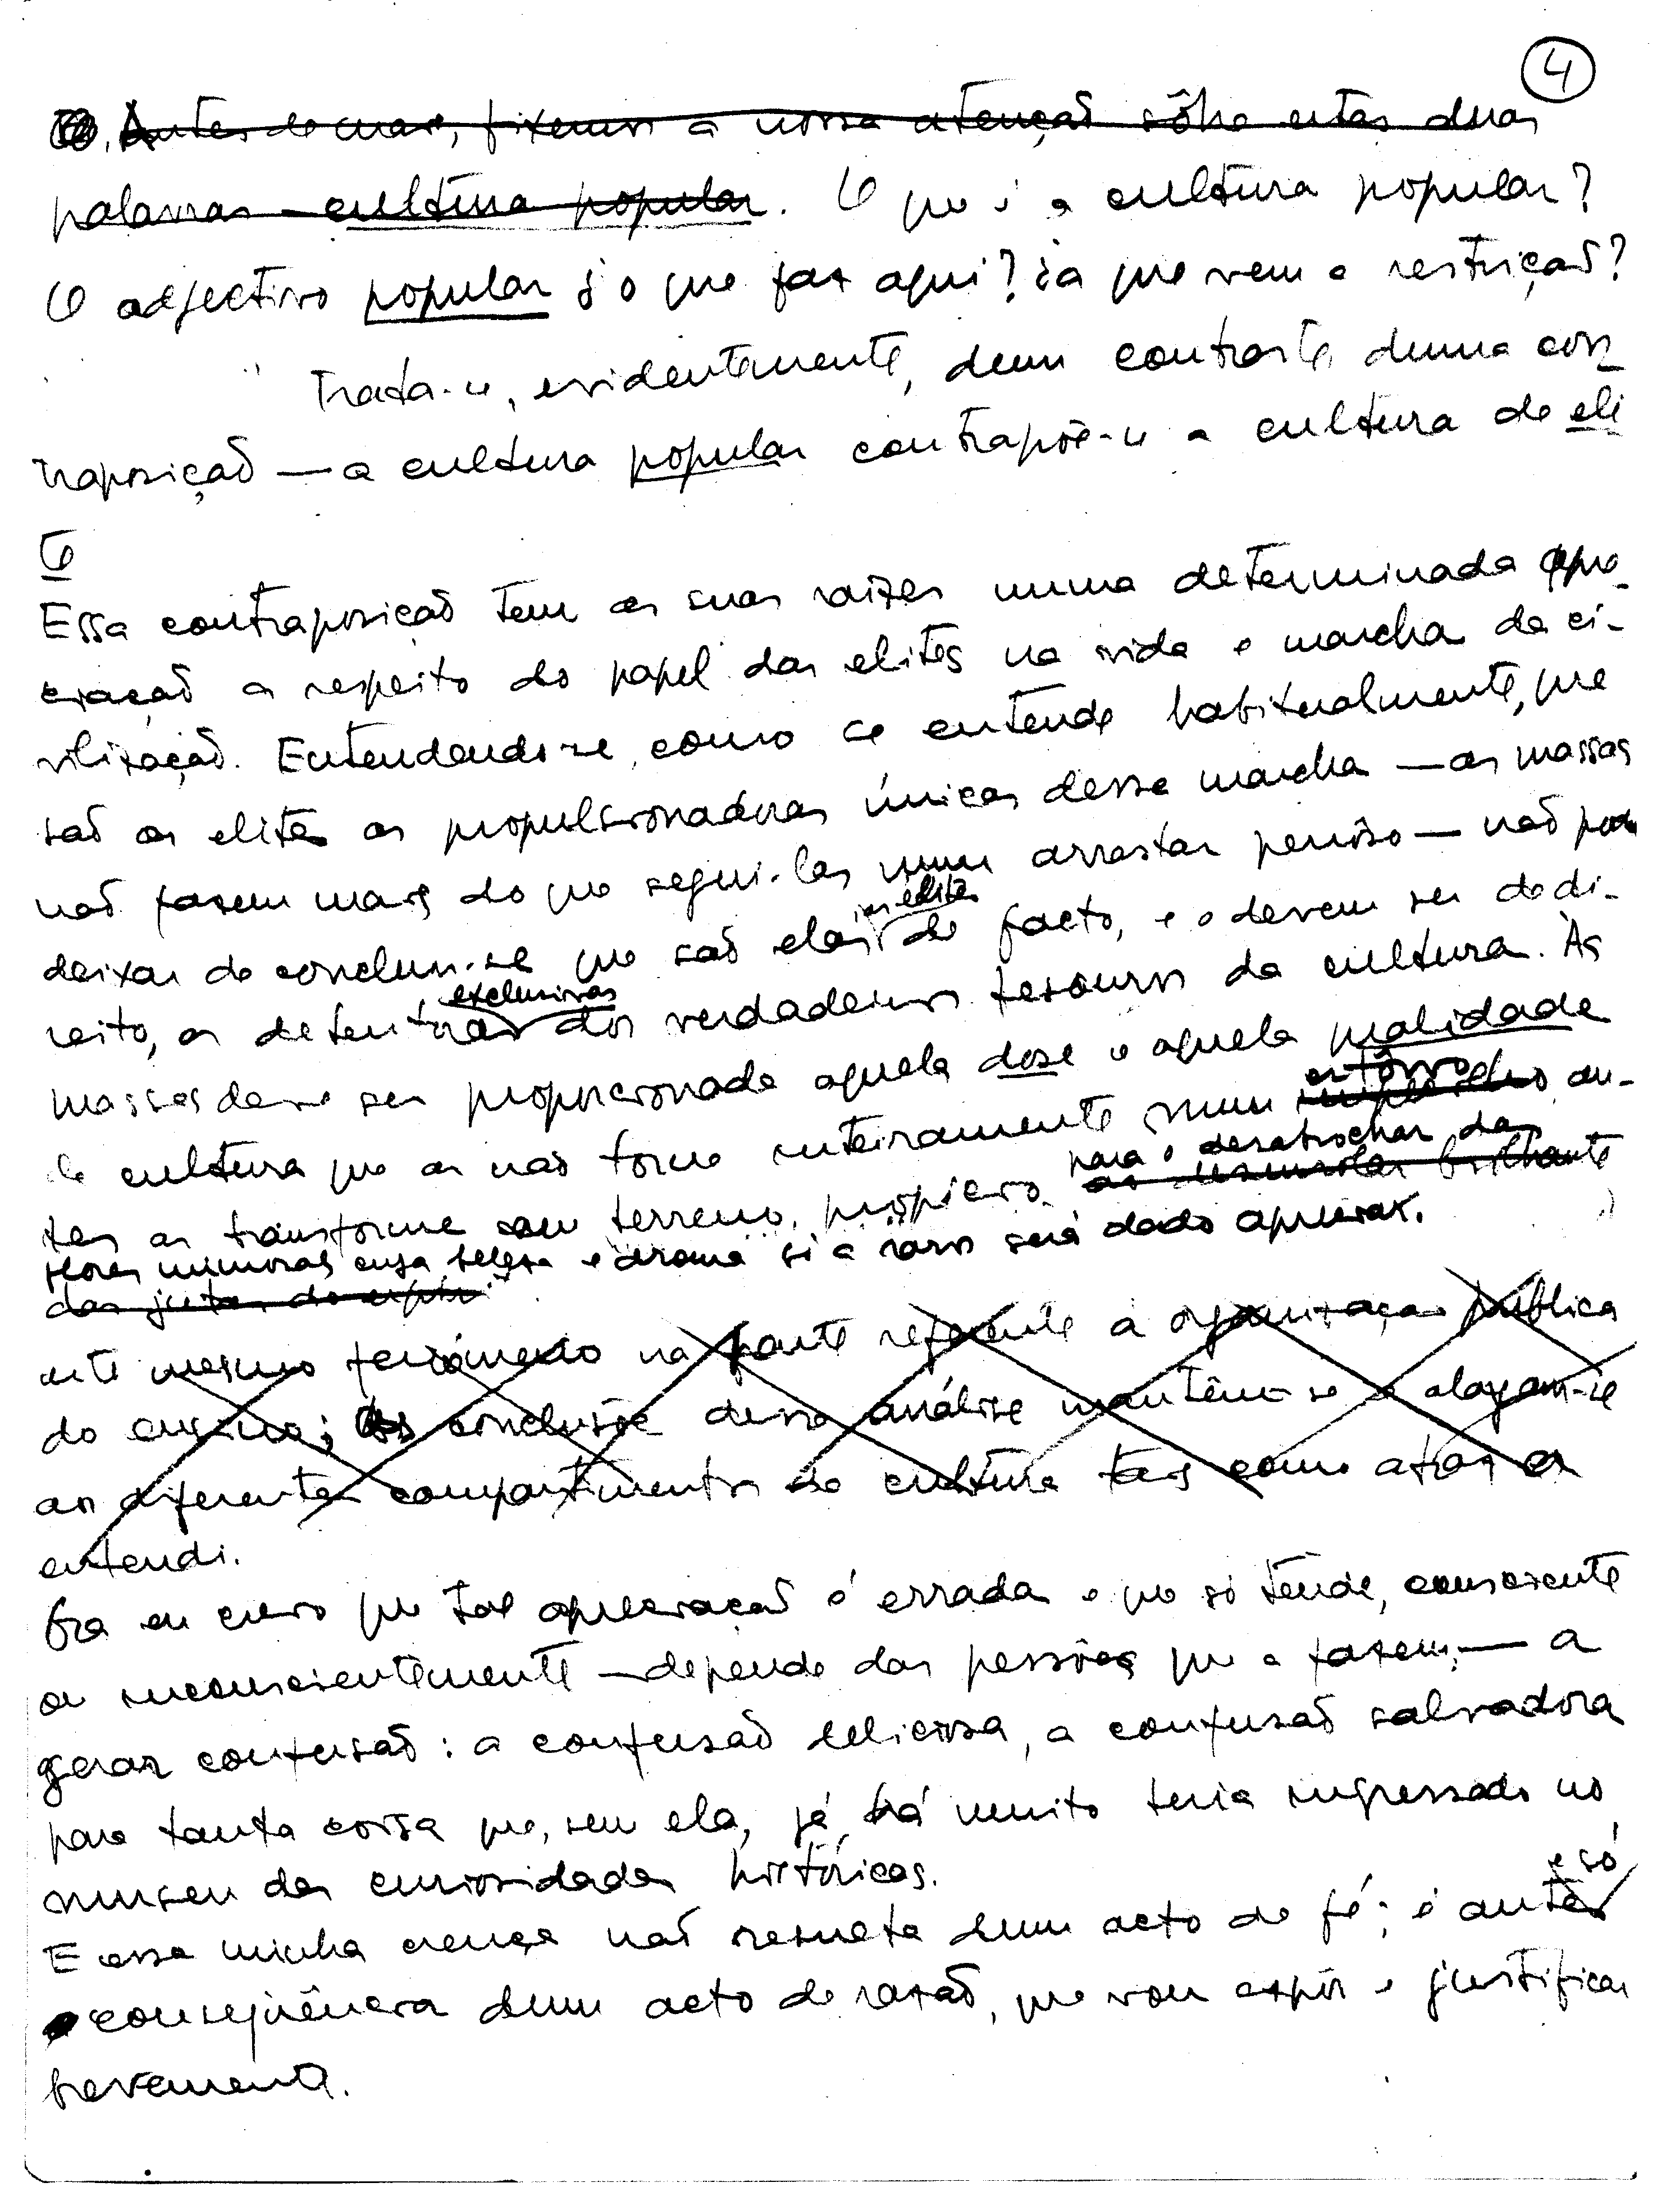 4
Antes de mais, fixemos a nossa atenção sôbre estas duas
palavras — cultura popular. O que é a cultura popular?
O adjectivo popular ¿ o que faz aqui? ¿a que vem a restrição?
Trata-se, evidentemente, dum contraste, duma con-
traposição — a cultura popular contrapõe-se a cultura de eli
te
Essa contraposição tem as suas raízes numa determinada apre-
ciação a respeito do papel das elites na vida e marcha da ci-
vilização. Entendendo-se, como se entende habitualmente, que
são as elites as propulsionadoras únicas dessa marcha — as massas
não fazem mais do que segui-las num arrastar penôso — não pode
as elites
deixar de concluir-se que são elas de facto, e o devem ser de di-
exclusivas
reito, as detentoras dos verdadeiros tesouros da cultura. Às
massas deve ser proporcionada aquela dose e aquela qualidade
estôrvo
de cultura que as não torne inteiramente num an-
para o desabrochar das
tes as transforme em terreno propício brilhante
flores mimosas cuja beleza e aroma só a raros será dado apreciar.
das
este mesmo fenómeno na parte referente à organização pública
do ensino; as conclusões dessa análise mantêm-se e alargam-se
aos diferentes compartimentos da cultura tais como atrás a
entendi.
Ora eu creio que tal apreciação é errada e que só tende, consciente
ou inconscientemente — depende das pessoas que a fazem — a
gerar confusão: a confusão deliciosa, a confusão salvadora
para tanta coisa que, sem ela, já há muito teria ingressado no
museu das curiosidades históricas.
e só
E essa minha crença não resulta dum acto de fé; é antes
consequência dum acto de razão, que vou expôr e justificar
brevemente.